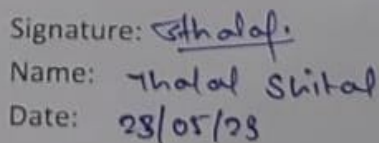 Signature: Sthalaf.
Name: Thalal Shital
Date: 23/05/23